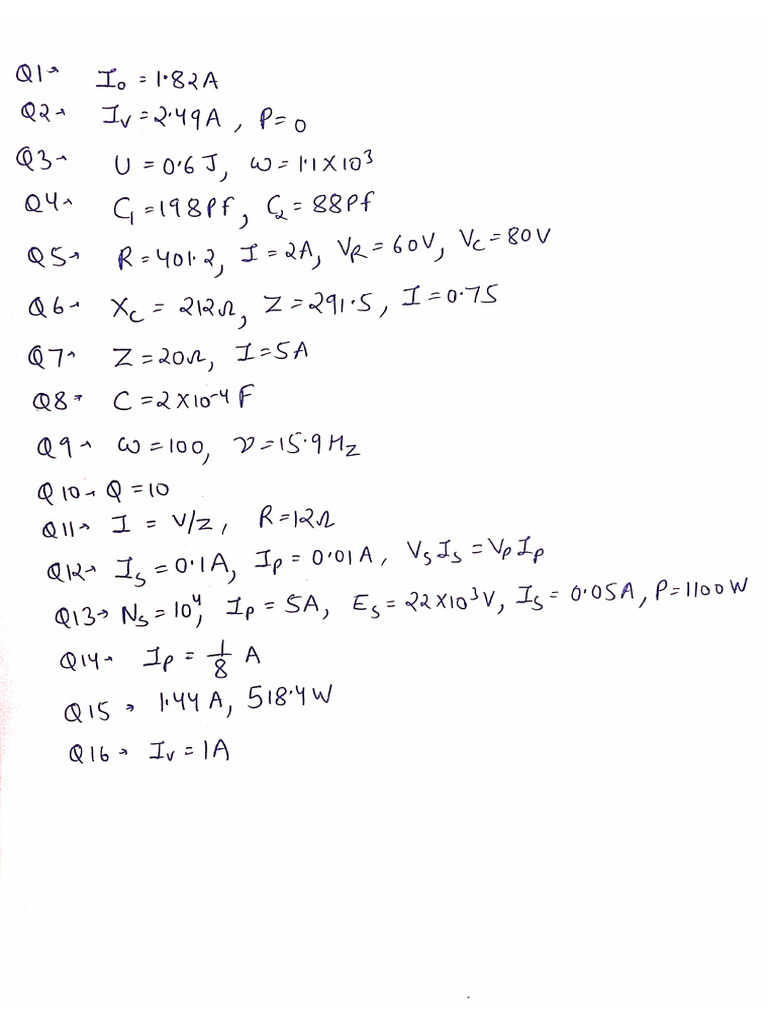 Q1→ I₀ = 1.82A
Q2→ Iᵥ = 2.49A, P = 0
Q3→ U = 0.6J, ω = 1.1×10³
Q4→ C₁ = 198Pf, C₂ = 88Pf
Q5→ R = 401.2, I = 2A, V_R = 60V, V_C = 80V
Q6→ X_C = 212Ω, Z = 291.5, I = 0.75
Q7→ Z = 20Ω, I = 5A
Q8→ C = 2×10⁻⁴F
Q9→ ω = 100, ν = 15.9Hz
Q10→ Q = 10
Q11→ I = V/Z, R = 12Ω
Q12→ I_S = 0.1A, I_P = 0.01A, V_S I_S = V_P I_P
Q13→ N_S = 10⁴, I_P = 5A, E_S = 22×10³V, I_S = 0.05A, P = 1100W
Q14→ I_P = 1/8 A
Q15→ 1.44A, 518.4W
Q16→ Iᵥ = 1A